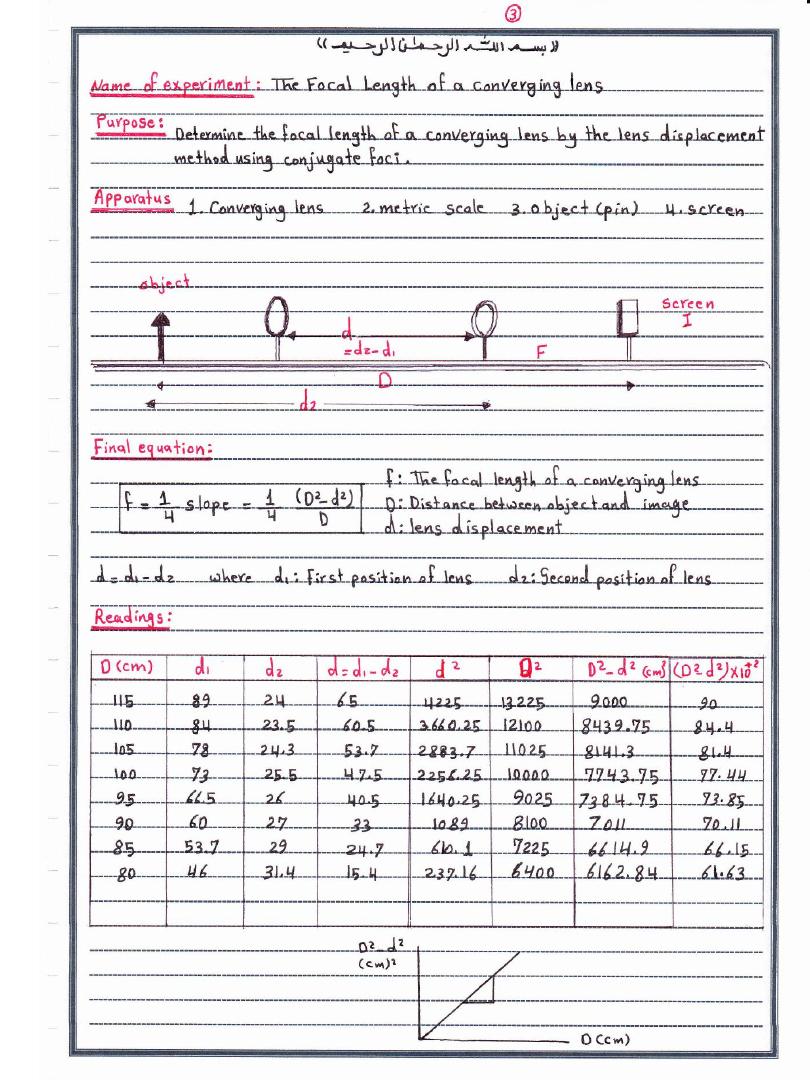 3
« بسم الله الرحمن الرحيم »
Name of experiment: The Focal Length of a converging lens
Purpose: Determine the focal length of a converging lens by the lens displacement
method using conjugate foci.
Apparatus 1. Converging lens 2. metric scale 3. object (pin) 4. screen
object
screen
I
d
=d2-d1
F
D
d2
Final equation:
f: The focal length of a converging lens
f = 1/4 slope = 1/4 (D²-d²)/D
D: Distance between object and image
d: lens displacement
d = d1 - d2 where d1: First position of lens d2: Second position of lens
Readings:
D (cm) d1 d2 d=d1-d2 d² D² D²-d² (cm)² (D²-d²)x10⁺²
115 89 24 65 4225 13225 9000 90
110 84 23.5 60.5 3660.25 12100 8439.75 84.4
105 78 24.3 53.7 2883.7 11025 8141.3 81.4
100 73 25.5 47.5 2256.25 10000 7743.75 77.44
95 66.5 26 40.5 1640.25 9025 7384.75 73.85
90 60 27 33 1089 8100 7011 70.11
85 53.7 29 24.7 610.1 7225 6614.9 66.15
80 46 31.4 15.4 237.16 6400 6162.84 61.63
D²-d²
(cm)²
D (cm)